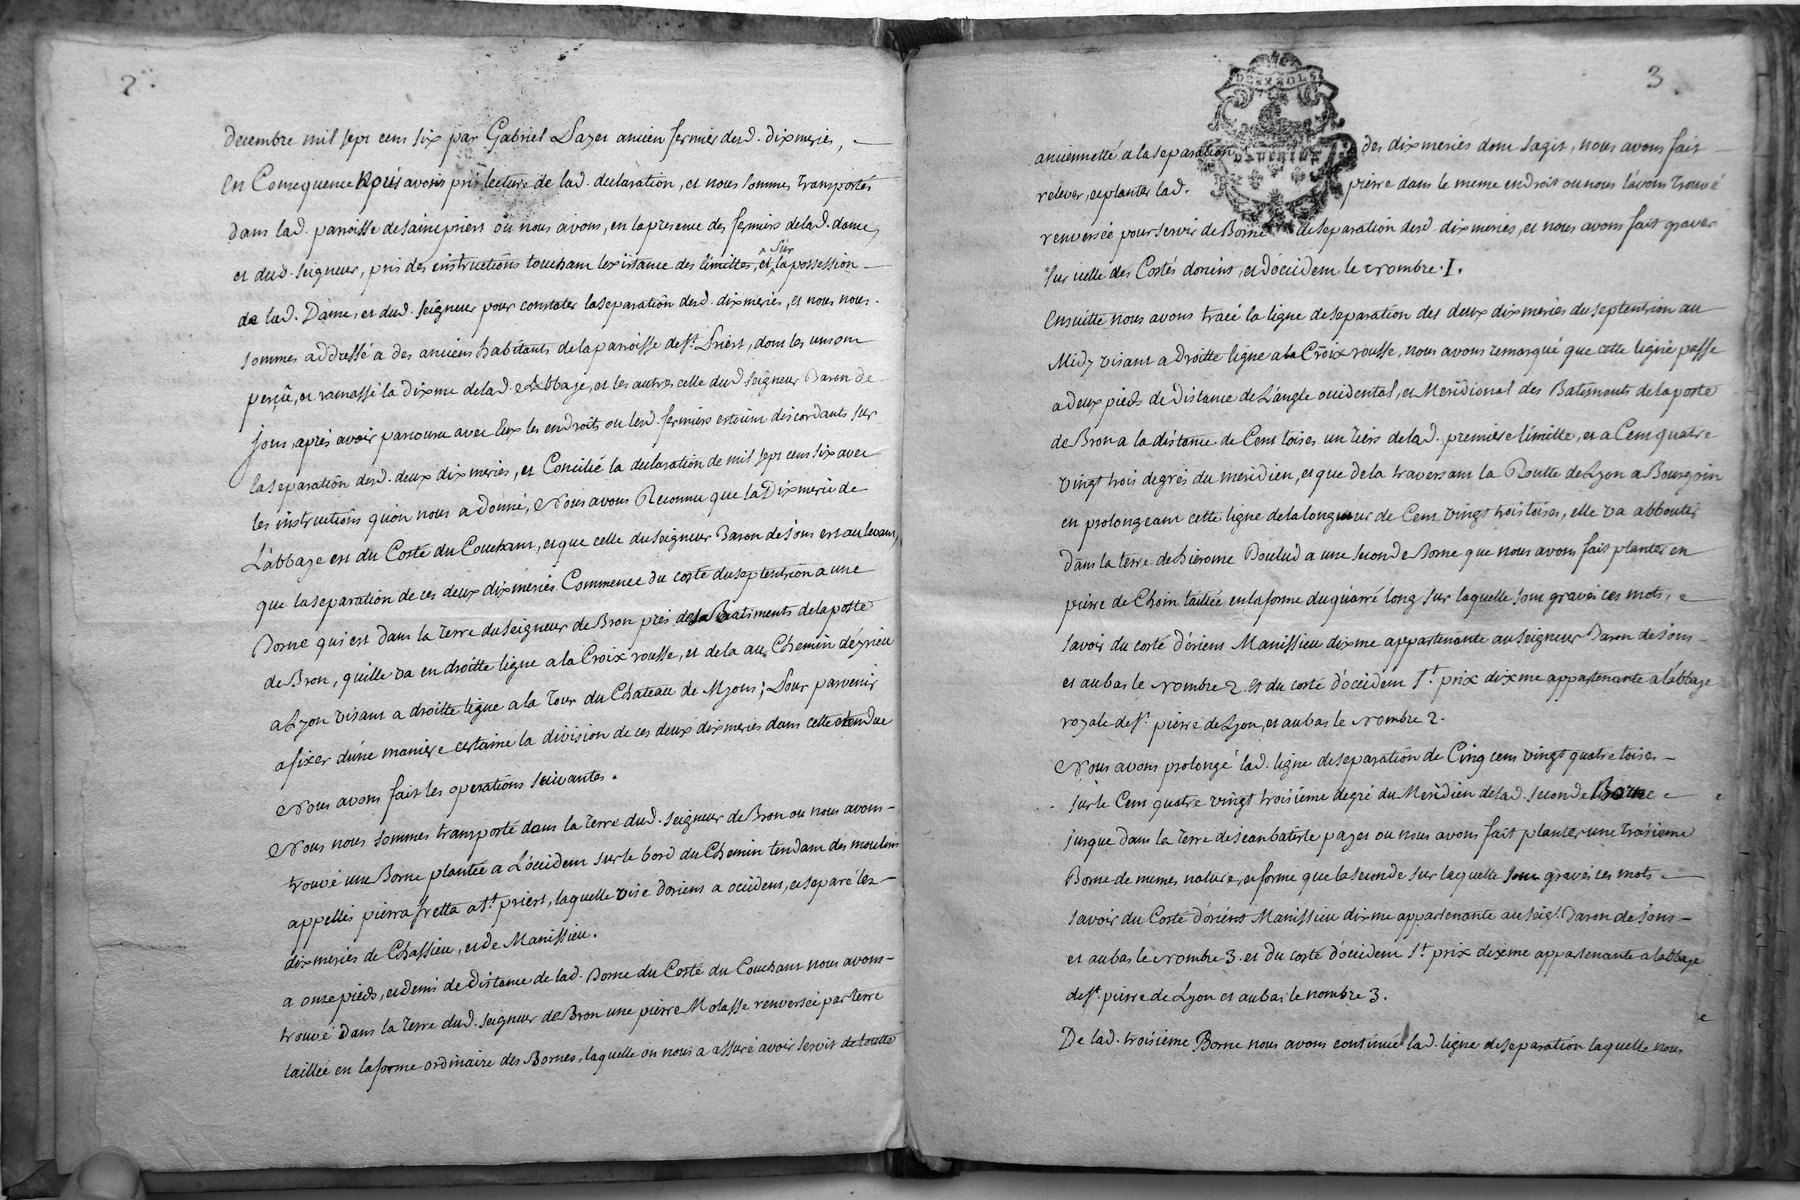 2
decembre mil sept cens six par Gabriel Pazet ancien fermier desd. dixmeries, —
En Consequence Nous avons pris lecture de lad. declaration, et nous sommes transportés
dans lad. paroisse de saint priest où nous avons, en la presence des fermiers de lad. dame,
et dud. seigneur, pris des instructions touchant lexistance des limittes, et sur la possession —
de lad. Dame, et dud. seigneur pour constater la separation desd. dixmeries, et nous nous
sommes addressé a des anciens habitants de la paroisse de St. Priest, dont les uns ont
perçû, et ramassé la dixme de lad. abbaye, et les autres celle dud. seigneur Baron de
jons, après avoir parcouru avec Eux les endroits ou lesd. fermiers estoient discordants sur
la separation desd. deux dixmeries, et Concilié la declaration de mil sept cens six avec
les instructions qu'on nous a donné, Nous avons Reconnu que la Dixmerie de
L'abbaye est du Costé du Couchant, et que celle du seigneur Baron de jons est au levant,
que la separation de ces deux dixmeries Commence du costé du septentrion a une
Borne qui est dans la terre du seigneur de Bron près des Batiments de la poste
de Bron, qu'elle va en droitte ligne a la Croix rousse, et de la au Chemin d'éyrieu
a Lyon visant a droitte ligne a la Tour du Chateau de Myons; Pour parvenir
a fixer d'une manière certaine la division de ces deux dixmeries dans cette étendue
Nous avons fait les operations suivantes.
Nous nous sommes transporté dans la terre dud. seigneur de Bron ou nous avons -
trouvé une Borne plantée a L'occident sur le bord du Chemin tendant des moulins
appellés pierra fretta a St. priest, laquelle vise d'orient a occident, et separe les —
dixmeries de Chassieu, et de Manissieu.
a onze pieds, et demi de distance de lad. Borne du Costé du Couchant nous avons -
trouvé dans la terre dud. seigneur de Bron une pierre Molasse renversée par terre
taillée en la forme ordinaire des Bornes, laquelle on nous a assuré avoir servit de toutte
3
DEUX SOLS
DAUPHINE
ancienneté a la separation des dixmeries dont s'agit, nous avons fait —
relever, et planter lad. pierre dans le meme endroit ou nous l'avons trouvé
renversée pour servir de Borne de separation desd. dixmeries, et nous avons fait graver
sur icelle des Costés d'orient, et d'occident le nombre I.
Ensuitte nous avons tracé la ligne de separation des deux dixmeries du septentrion au
Midy visant a droitte ligne a la Croix rousse, nous avons remarqué que cette ligne passe
a deux pieds de distance de L'angle occidental, et Meridional des Batiments de la poste
de Bron a la distance de Cent toises un tiers de lad. premiere limitte, et a Cent quatre
vingt trois degrés du meridien, et que de la traversant la Routte de Lyon a Bourgoin
en prolongeant cette ligne de la longueur de Cent vingt trois toises, elle va abboutir
dans la terre de hierome Boulud a une seconde Borne que nous avons fait planter en
pierre de Choin taillée en la forme du quarré long sur laquelle sont gravés ces mots, —
savoir du costé d'orient Manissieu dixme appartenante au seigneur Baron de jons -
et au bas le nombre 2. et du costé d'occident St. prix dixme appartenante a l'abbaye
royale de St. pierre de Lyon, et au bas le nombre 2.
Nous avons prolongé lad. ligne de separation de Cinq cens vingt quatre toises -
sur le Cent quatre vingt troisieme degré du Meridien de lad. seconde Borne —
jusque dans la terre de jean batiste pazet ou nous avons fait planter une troisieme
Borne de memes nature, et forme que la seconde sur laquelle sont gravés ces mots —
savoir du Costé d'orient Manissieu dixme appartenante au seigr. Baron de jons -
et au bas le nombre 3. et du costé d'occident St. prix dixme appartenante a l'abbaye
de St. pierre de Lyon et au bas le nombre 3.
De lad. troisieme Borne nous avons continué lad. ligne de separation laquelle nous